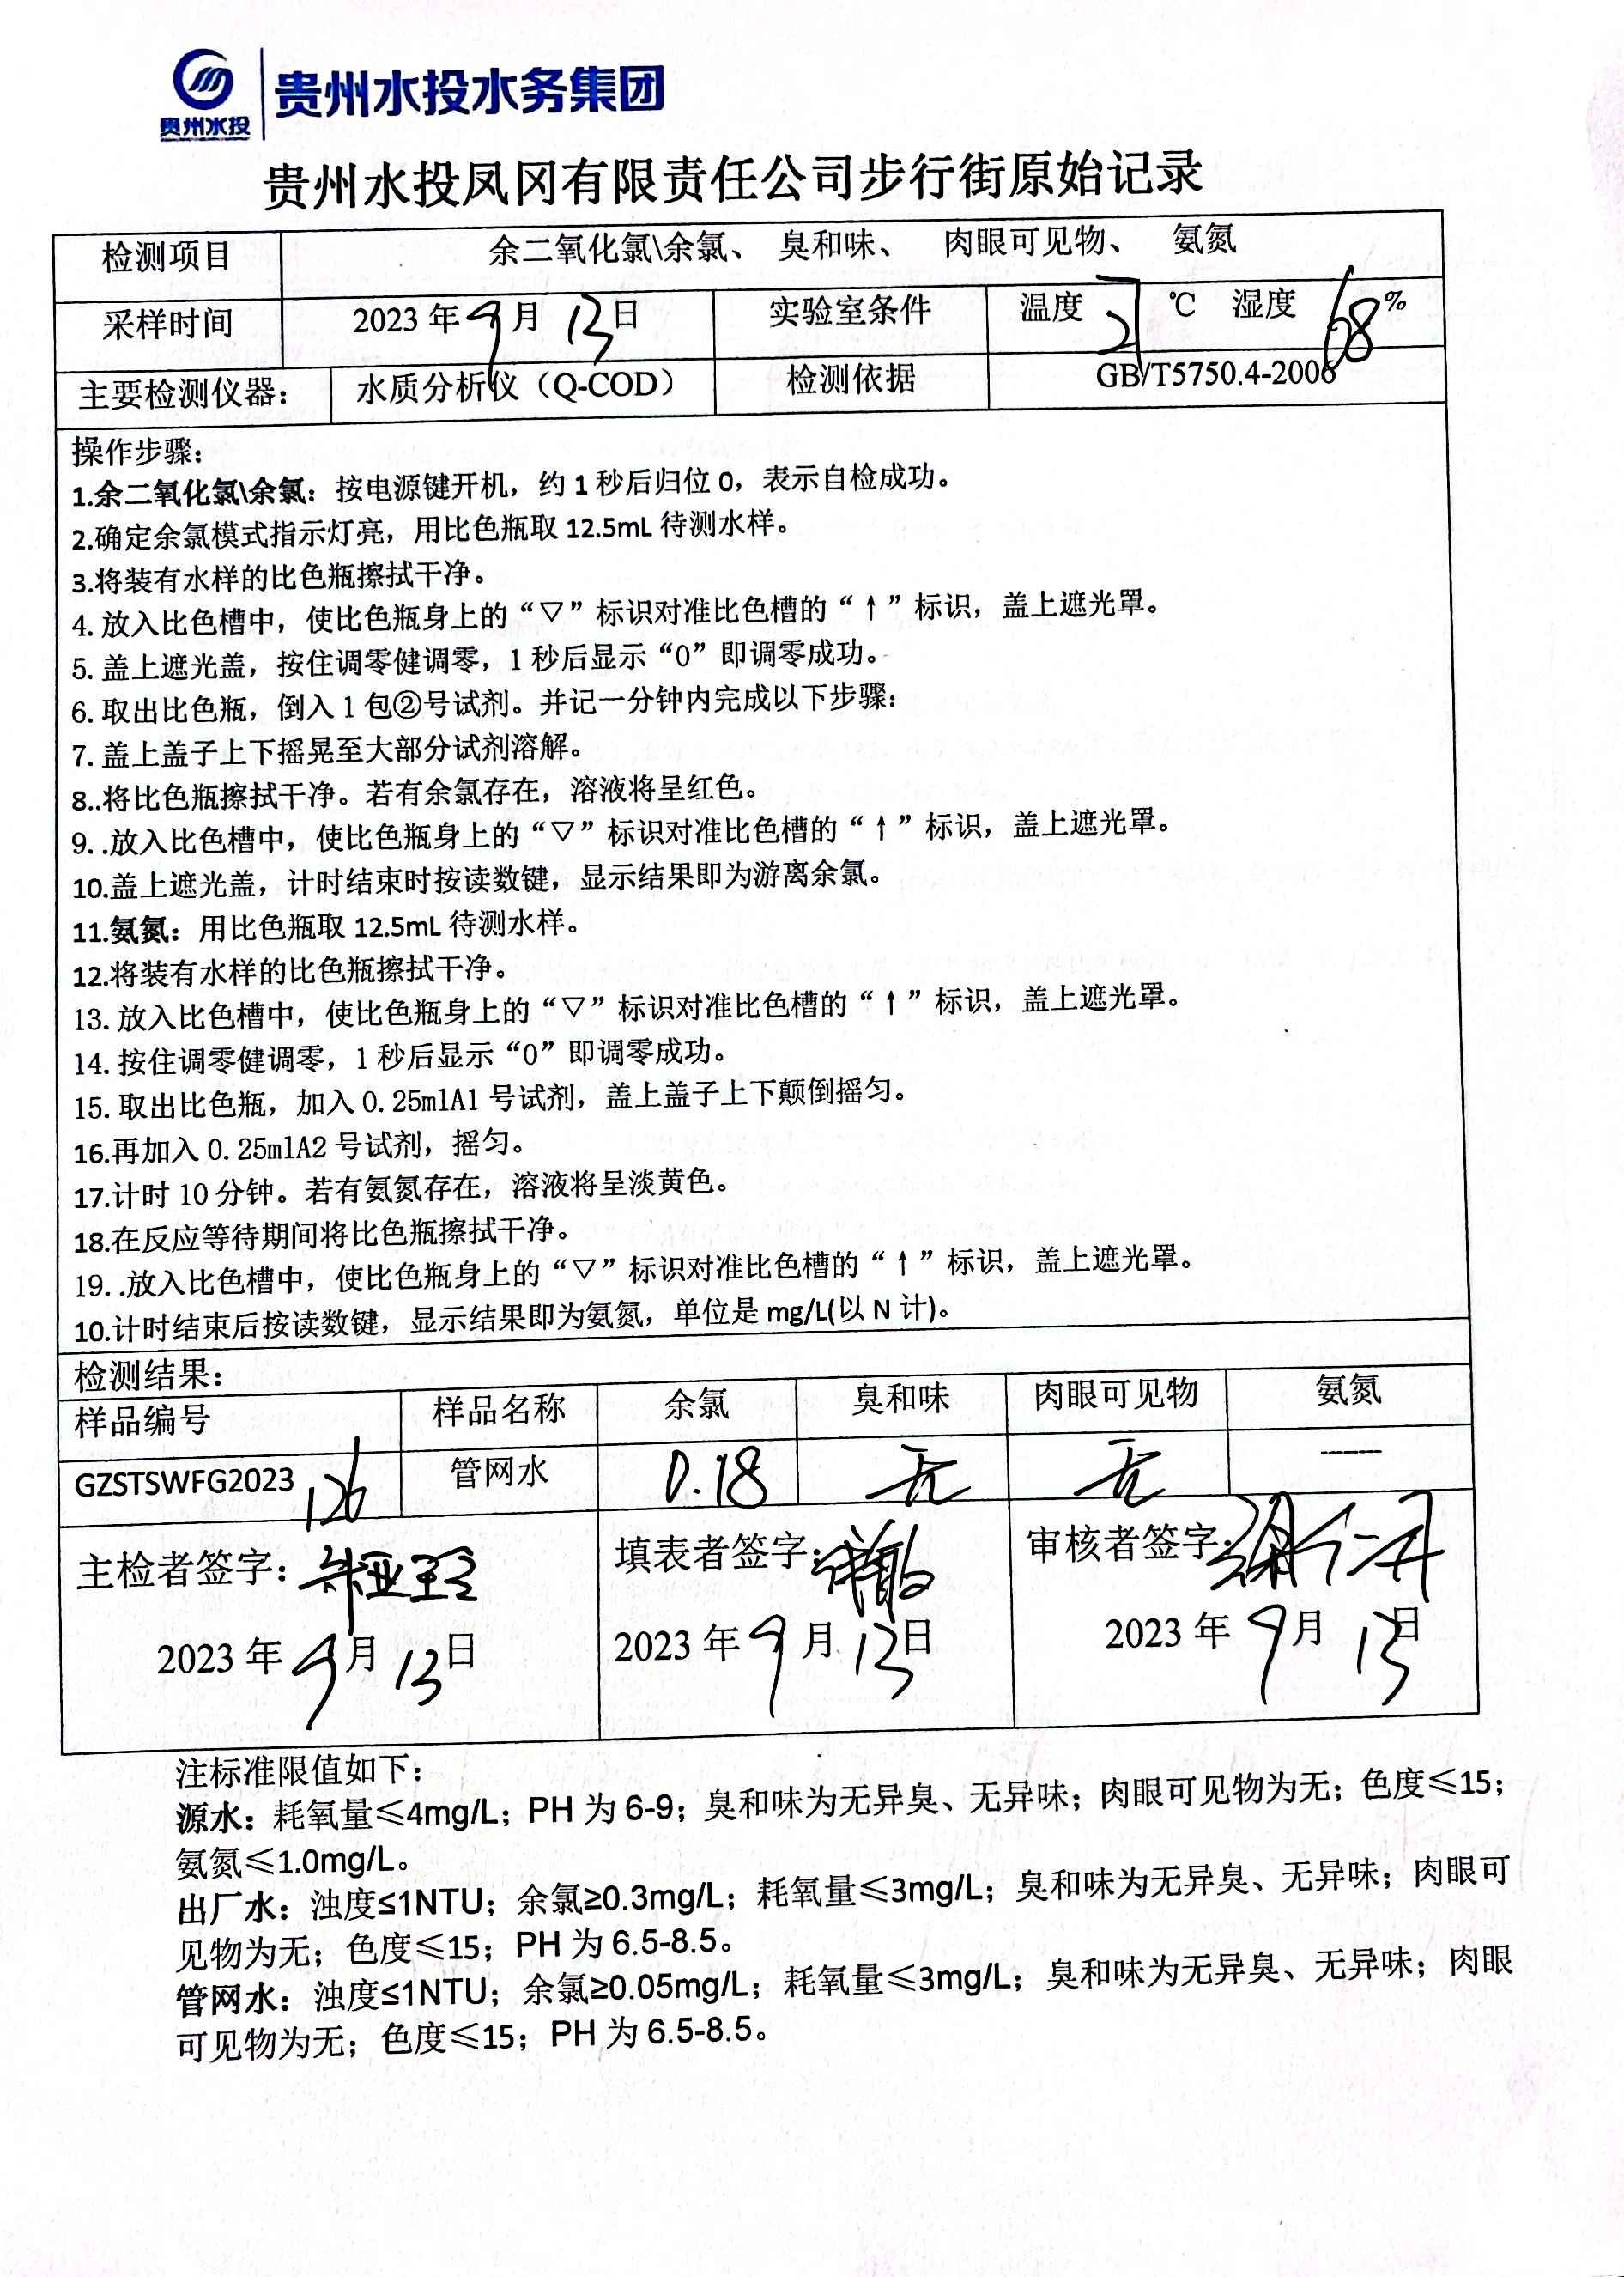 贵州水投
贵州水投水务集团
贵州水投凤冈有限责任公司步行街原始记录
检测项目 余二氧化氯\余氯、 臭和味、 肉眼可见物、 氨氮
采样时间 2023年9月13日 实验室条件 温度21℃ 湿度68%
主要检测仪器： 水质分析仪（Q-COD） 检测依据 GB/T5750.4-2006
操作步骤：
1.余二氧化氯\余氯：按电源键开机，约1秒后归位0，表示自检成功。
2.确定余氯模式指示灯亮，用比色瓶取12.5mL待测水样。
3.将装有水样的比色瓶擦拭干净。
4.放入比色槽中，使比色瓶身上的“▽”标识对准比色槽的“↑”标识，盖上遮光罩。
5.盖上遮光盖，按住调零健调零，1秒后显示“0”即调零成功。
6.取出比色瓶，倒入1包②号试剂。并记一分钟内完成以下步骤：
7.盖上盖子上下摇晃至大部分试剂溶解。
8..将比色瓶擦拭干净。若有余氯存在，溶液将呈红色。
9. .放入比色槽中，使比色瓶身上的“▽”标识对准比色槽的“↑”标识，盖上遮光罩。
10.盖上遮光盖，计时结束时按读数键，显示结果即为游离余氯。
11.氨氮：用比色瓶取12.5mL待测水样。
12.将装有水样的比色瓶擦拭干净。
13.放入比色槽中，使比色瓶身上的“▽”标识对准比色槽的“↑”标识，盖上遮光罩。
14.按住调零健调零，1秒后显示“0”即调零成功。
15.取出比色瓶，加入0.25mlA1号试剂，盖上盖子上下颠倒摇匀。
16.再加入0.25mlA2号试剂，摇匀。
17.计时10分钟。若有氨氮存在，溶液将呈淡黄色。
18.在反应等待期间将比色瓶擦拭干净。
19. .放入比色槽中，使比色瓶身上的“▽”标识对准比色槽的“↑”标识，盖上遮光罩。
10.计时结束后按读数键，显示结果即为氨氮，单位是mg/L(以N计)。
检测结果：
样品编号 样品名称 余氯 臭和味 肉眼可见物 氨氮
GZSTSWFG2023126 管网水 0.18 无 无 --------
主检者签字： 填表者签字： 审核者签字：
2023年9月13日 2023年9月13日 2023年9月13日
注标准限值如下：
源水：耗氧量≤4mg/L；PH为6-9；臭和味为无异臭、无异味；肉眼可见物为无；色度≤15；
氨氮≤1.0mg/L。
出厂水：浊度≤1NTU；余氯≥0.3mg/L；耗氧量≤3mg/L；臭和味为无异臭、无异味；肉眼可
见物为无；色度≤15；PH为6.5-8.5。
管网水：浊度≤1NTU；余氯≥0.05mg/L；耗氧量≤3mg/L；臭和味为无异臭、无异味；肉眼
可见物为无；色度≤15；PH为6.5-8.5。